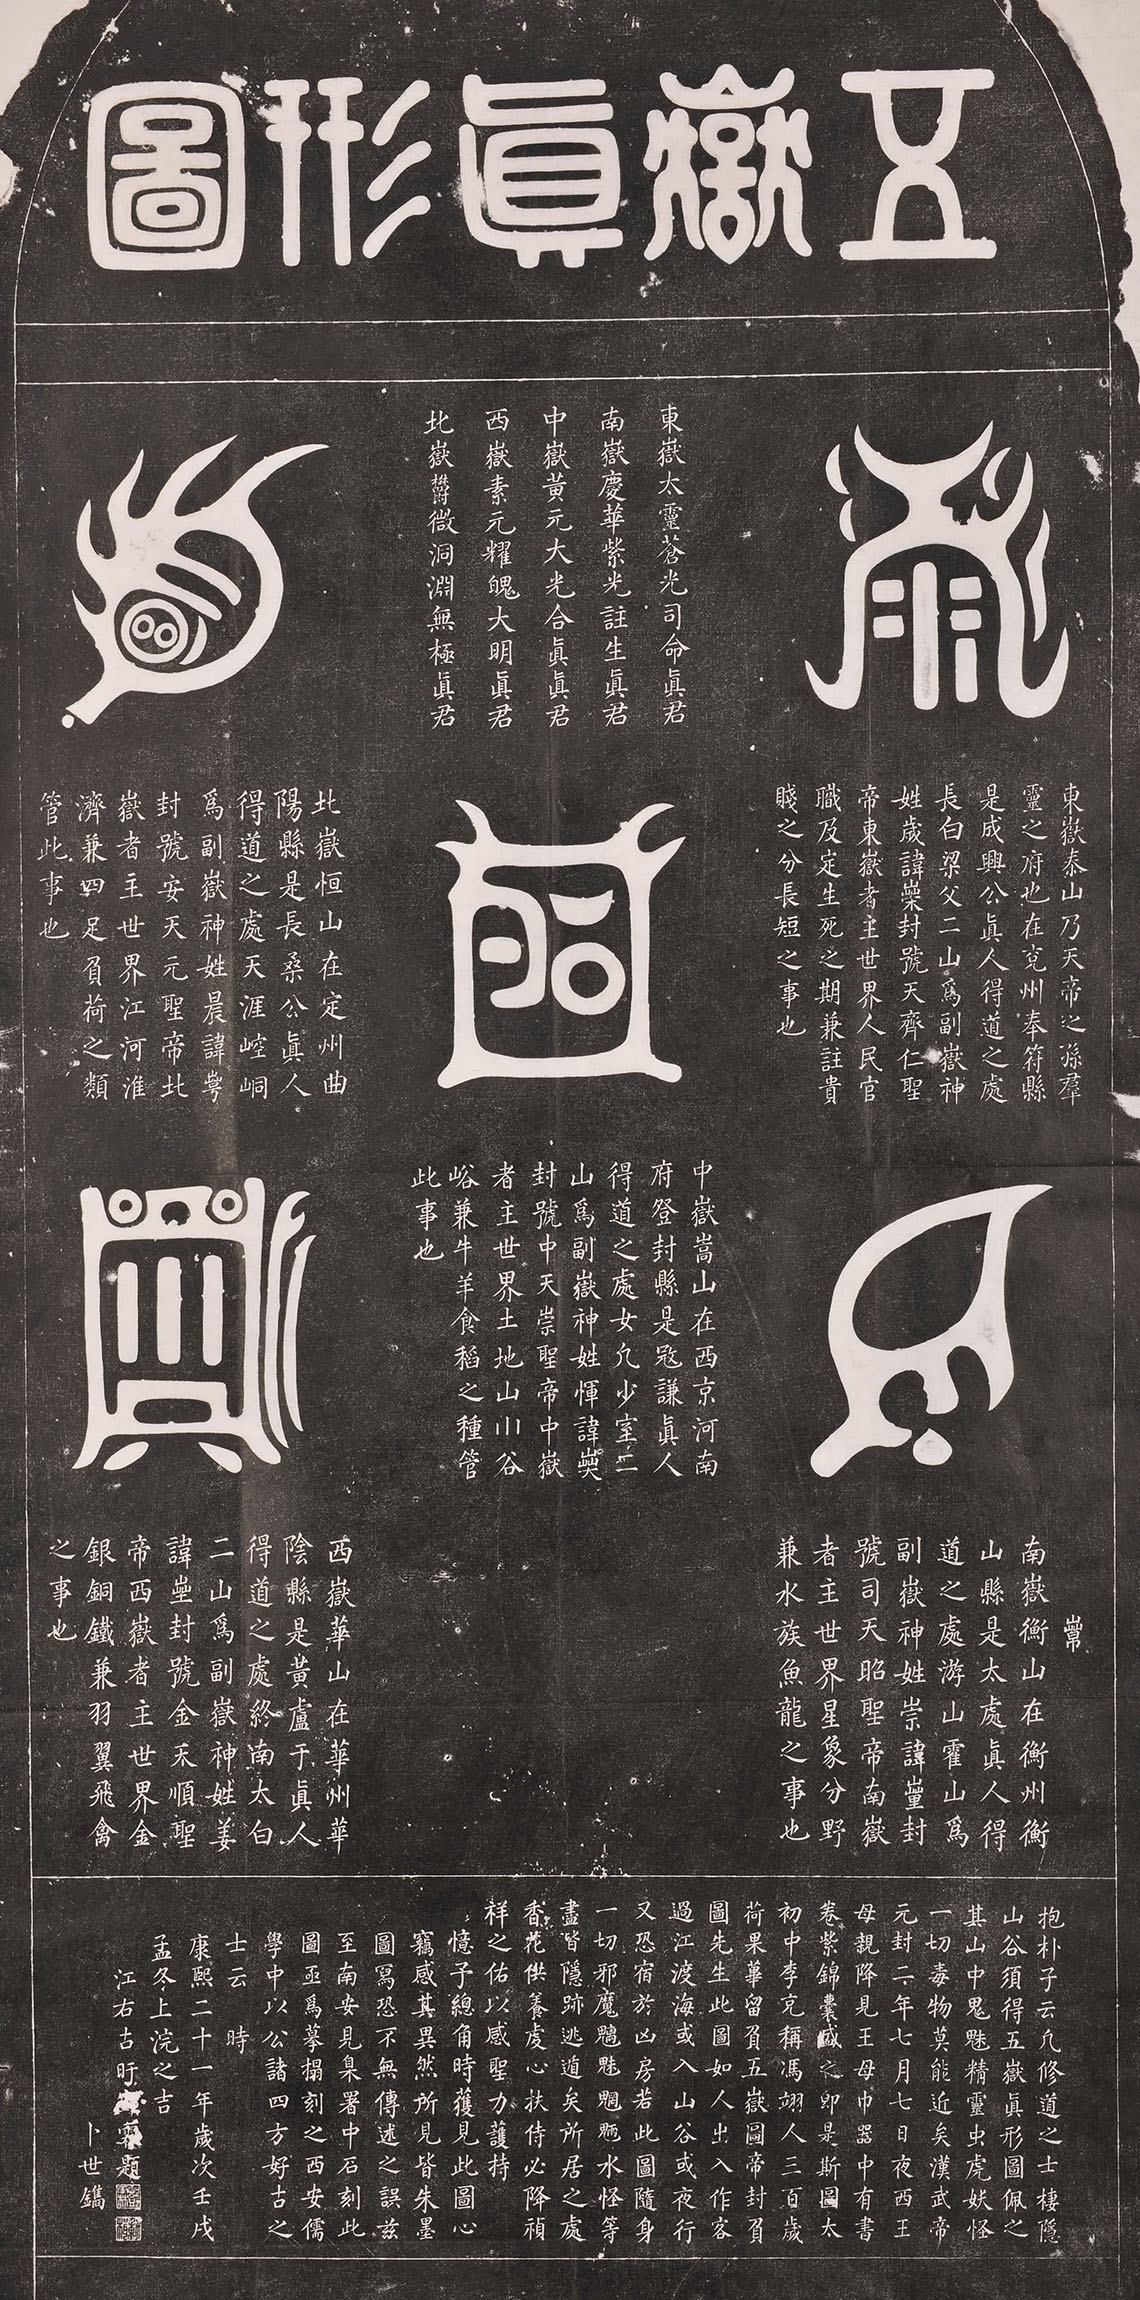 五嶽真形圖
東嶽太靈蒼光司命真君
南嶽慶華紫光註生真君
中嶽黃元大光合真真君
西嶽素元耀魄大明真君
北嶽鬱微洞淵無極真君
東嶽泰山乃天帝之孫羣
靈之府也在兗州奉符縣
是成興公真人得道之處
長白梁父二山為副嶽神
姓歲諱崇封號天齊仁聖
帝東嶽者主世界人民官
職及定生死之期兼註貴
賤之分長短之事也
北嶽恒山在定州曲
陽縣是長桑公真人
得道之處天涯崆峒
為副嶽神姓晨諱
封號安天元聖帝北
嶽者主世界江河淮
濟兼四足負荷之類
管此事也
中嶽嵩山在西京河南
府登封縣是寇謙真人
得道之處女几少室二
山為副嶽神姓惲諱
封號中天崇聖帝中嶽
者主世界土地山川谷
峪兼牛羊食稻之種管
此事也
南嶽衡山在衡州衡
山縣是太處真人得
道之處游山霍山為
副嶽神姓崇諱封
號司天昭聖帝南嶽
者主世界星象分野
兼水族魚龍之事也
西嶽華山在華州華
陰縣是黃盧于真人
得道之處終南太白
二山為副嶽神姓姜
諱封號金天順聖
帝西嶽者主世界金
銀銅鐵兼羽翼飛禽
之事也
抱朴子云凡修道之士棲隱
山谷須得五嶽真形圖佩之
其山中鬼魅精靈虫虎妖怪
一切毒物莫能近矣漢武帝
元封二年七月七日夜西王
母親降見王母巾器中有書
卷紫錦囊盛之即是斯圖太
初中李充稱馮翊人三百歲
荷果蓽留負五嶽圖帝封負
圖先生此圖如人出入作客
過江渡海或入山谷或夜行
又恐宿於凶房若此圖隨身
一切邪魔魑魅魍魎水怪等
盡皆隱跡逃遁矣所居之處
香花供養虔心扶侍必降禎
祥之佑以感聖力護持
憶予總角時獲見此圖心
竊感其異然所見皆朱墨
圖寫恐不無傳述之誤茲
至南安見臬署中石刻此
圖亟為摹搨刻之西安儒
學中以公諸四方好古之
士云　時
康熙二十一年歲次壬戌
孟冬上浣之吉
江右古盱題
卜世鐫